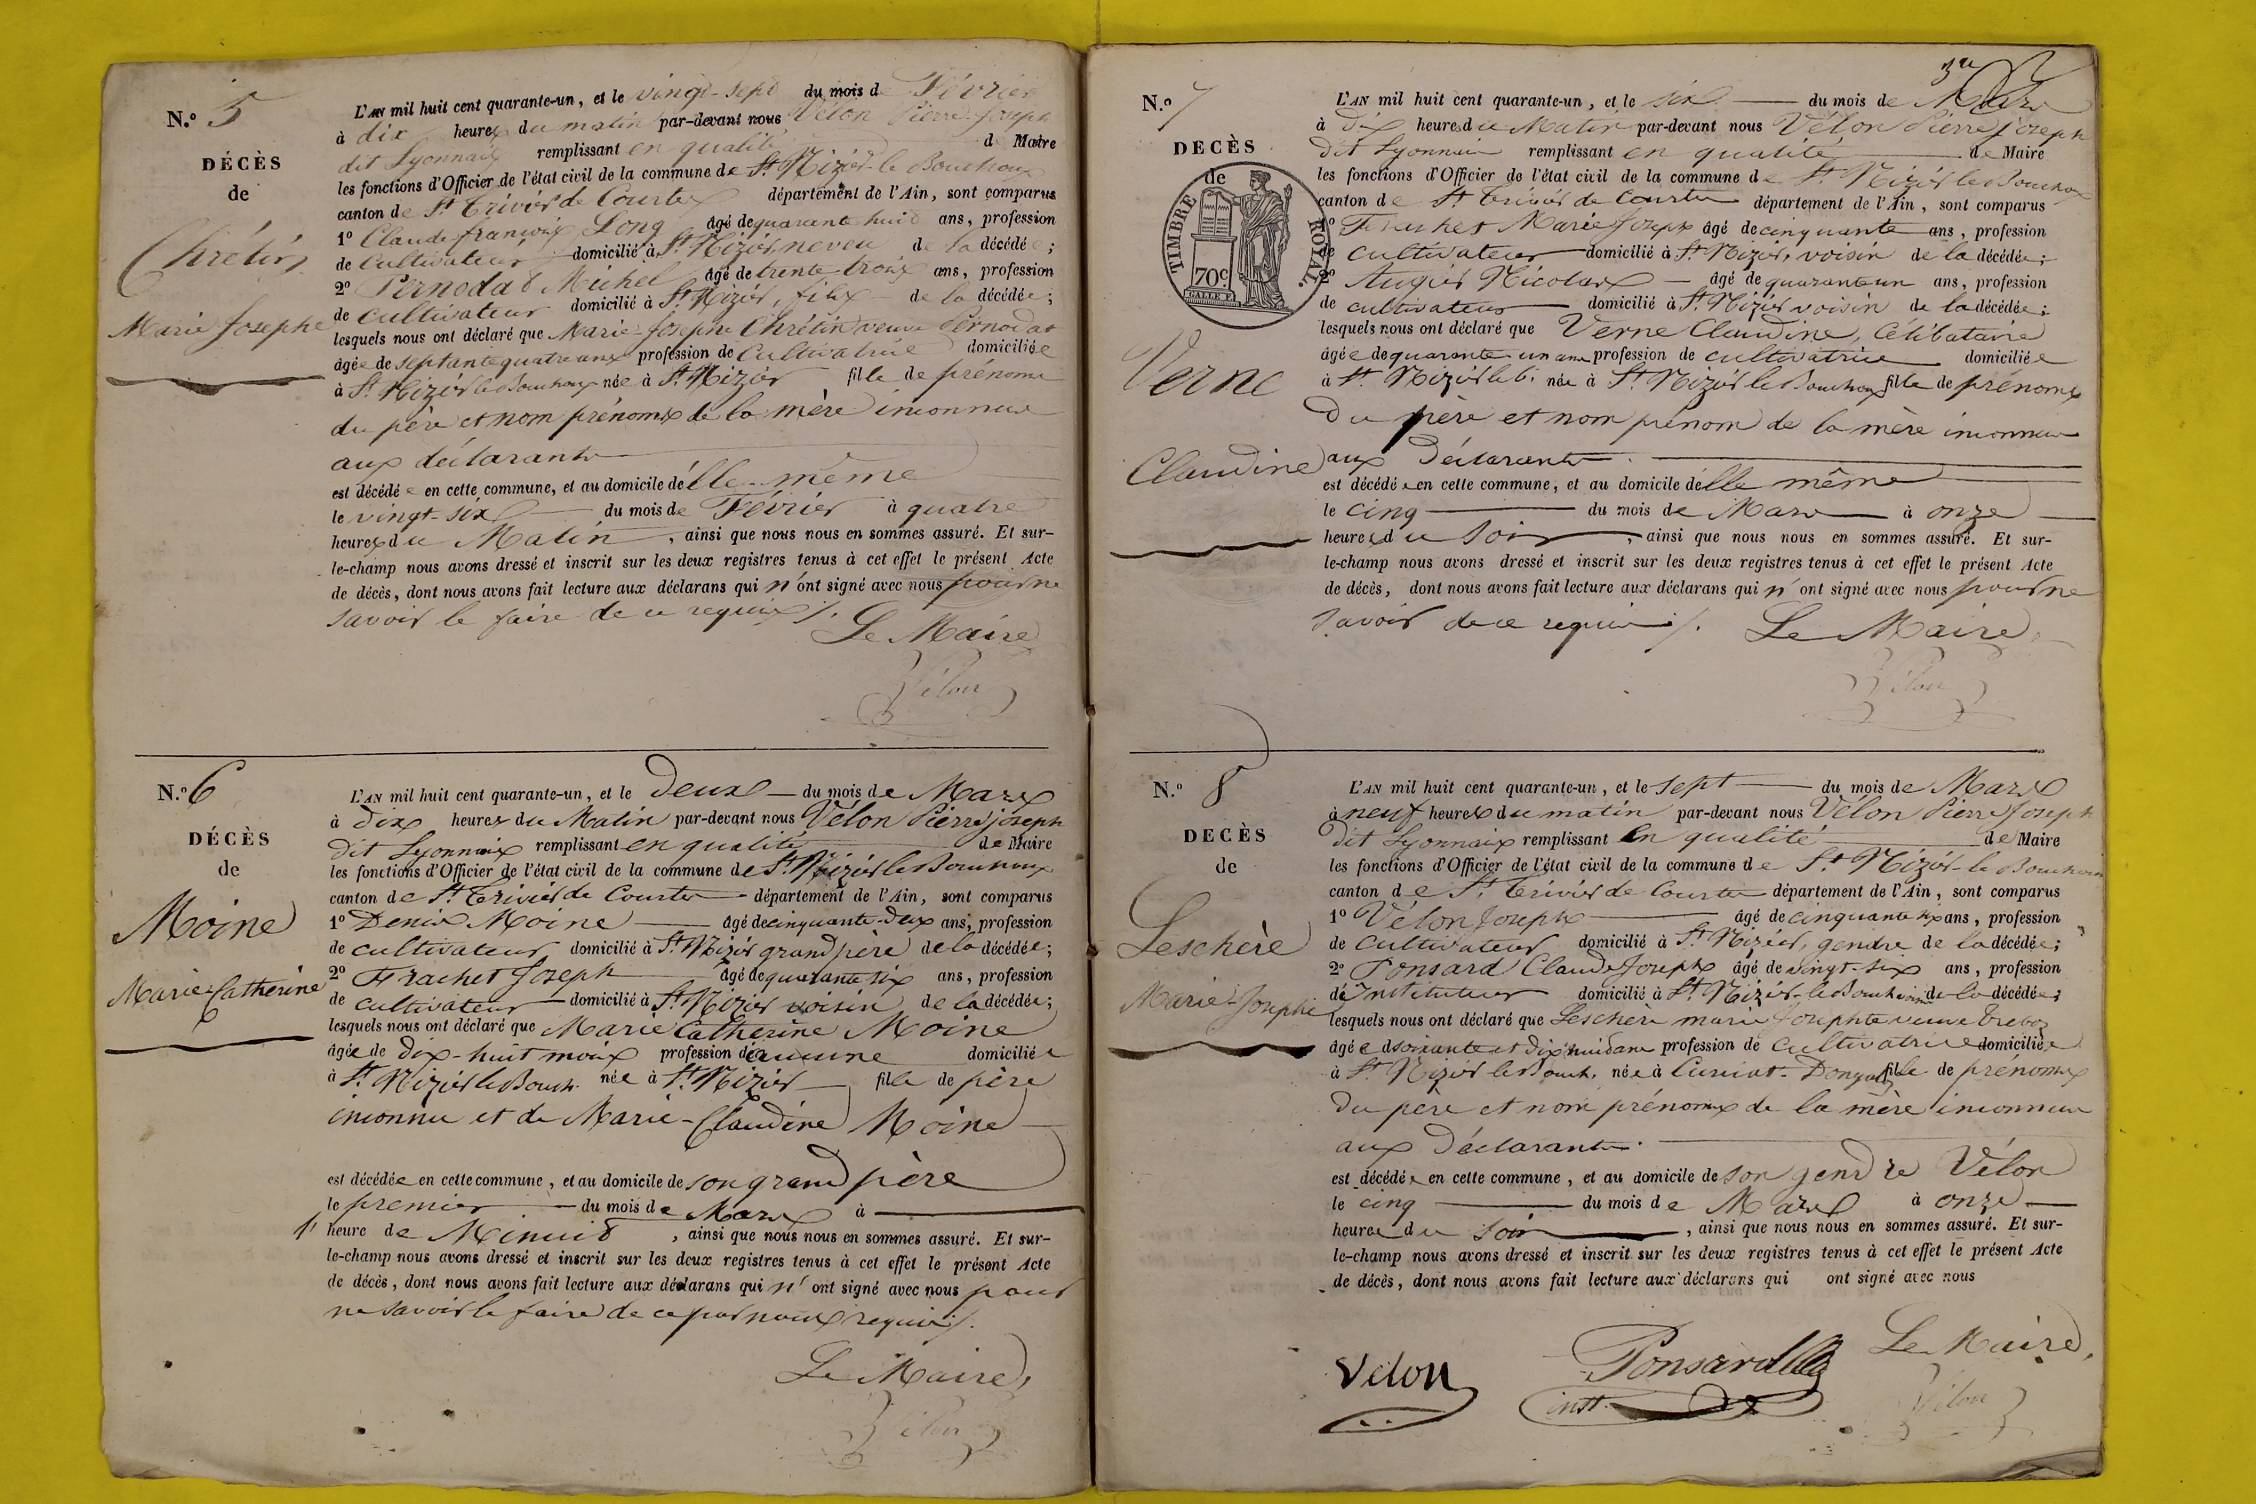 N.º 5
DÉCÈS
de
Chrétin
Marie Josephe
L'AN mil huit cent quarante-un, et le vingt-sept du mois de Février
à dix heures du matin par-devant nous Vélon Pierre Joseph
dit Lyonnais remplissant en qualité de Maire
les fonctions d'Officier de l'état civil de la commune de St Nizier-le Bouchoux
canton de St Trivier de Courtes département de l'Ain, sont comparus
1º Claude françois Long âgé de quarante huit ans, profession
de Cultivateur domicilié à St Nizier neveu de la décédée;
2º Pernodat Michel âgé de trente trois ans, profession
de Cultivateur domicilié à St Nizier, fils de la décédée;
lesquels nous ont déclaré que Marie Josephe Chrétin veuve Pernodat
âgée de septante quatre ans profession de Cultivatrice domiciliée
à St Nizier le Bouchoux née à St Nizier fille de prénoms
du père et nom prénoms de la mère inconnus
aux déclarants
est décédée en cette commune, et au domicile d'élle même
le vingt-six du mois de Février à quatre
heures du Matin, ainsi que nous nous en sommes assuré. Et sur-
le-champ nous avons dressé et inscrit sur les deux registres tenus à cet effet le présent Acte
de décès, dont nous avons fait lecture aux déclarans qui n'ont signé avec nous pour ne
savoir le faire de ce requis /.
Le Maire
Vélon
N.º 6
DÉCÈS
de
Moine
Marie-Catherine
L'AN mil huit cent quarante-un, et le deux du mois de Mars
à dix heures du Matin par-devant nous Vélon Pierre joseph
dit Lyonnais remplissant en qualité de Maire
les fonctions d'Officier de l'état civil de la commune de St Nizier le Bouchoux
canton de St Trivier de Courtes département de l'Ain, sont comparus
1º Denis Moine âgé de cinquante-deux ans, profession
de cultivateur domicilié à St Nizier grand père de la décédée;
2º Frachet Joseph âgé de quarante six ans, profession
de cultivateur domicilié à St Nizier voisin de la décédée;
lesquels nous ont déclaré que Marie Catherine Moine
âgée de dix-huit mois profession d'aucune domiciliée
à St Nizier le Bouch. née à St Nizier fille de père
inconnu et de Marie-Claudine Moine
est décédée en cette commune, et au domicile de son grand père
le premier du mois de Mars à
1' heure de Minuit, ainsi que nous nous en sommes assuré. Et sur-
le-champ nous avons dressé et inscrit sur les deux registres tenus à cet effet le présent Acte
de décès, dont nous avons fait lecture aux déclarans qui n'ont signé avec nous pour
ne savoir le faire de ce par nous requis /.
Le Maire,
Vélon
3e
N.º 7
DECÈS
de
TIMBRE ROYAL.
70c
Verne
Claudine
L'AN mil huit cent quarante-un, et le six du mois de Mars
à dix heures du Matin par-devant nous Vélon Pierre joseph
dit Lyonnais remplissant en qualité de Maire
les fonctions d'Officier de l'état civil de la commune de St Nizier le Bouchoux
canton de St Trivier de Courtes département de l'Ain, sont comparus
1º Frachet Marie Joseph âgé de cinquante ans, profession
de cultivateur domicilié à St Nizier, voisin de la décédée;
2º Augier Nicolas âgé de quarante un ans, profession
de cultivateur domicilié à St Nizier voisin de la décédée;
lesquels nous ont déclaré que Verne Claudine, Célibataire
âgée de quarante un ans profession de cultivatrice domiciliée
à St. Nizier le b. née à St Nizier le Bouchoux fille de prénoms
du père et nom prénom de la mère inconnus
aux déclarants.
est décédée en cette commune, et au domicile d'élle même
le cinq du mois de Mars à onze
heures du soir, ainsi que nous nous en sommes assuré. Et sur-
le-champ nous avons dressé et inscrit sur les deux registres tenus à cet effet le présent Acte
de décès, dont nous avons fait lecture aux déclarans qui n'ont signé avec nous pour ne
savoir de ce requis /.
Le Maire,
Vélon
N.º 8
DECÈS
de
Leschère
Marie-Josephe
L'AN mil huit cent quarante-un, et le sept du mois de Mars
à neuf heures du matin par-devant nous Vélon Pierre Joseph
dit Lyonnais remplissant en qualité de Maire
les fonctions d'Officier de l'état civil de la commune de St Nizier-le Bouchoux
canton de St. Trivier de Courtes département de l'Ain, sont comparus
1º Vélon Joseph âgé de cinquante six ans, profession
de Cultivateur domicilié à St. Nizier, gendre de la décédée;
2º Ponsard Claude Joseph âgé de vingt-six ans, profession
d'Instituteur domicilié à St Nizier-le Bouch. voisin de la décédée;
lesquels nous ont déclaré que Leschère marie Josephte veuve Treboz
âgée de soixante et dix huit ans profession de cultivatrice domiciliée
à St Nizier le Bouch. née à Curciat-Dongalon fille de prénoms
du père et nom prénoms de la mère inconnus
aux déclarants.
est décédée en cette commune, et au domicile de son gendre Vélon
le cinq du mois de Mars à onze
heures du soir, ainsi que nous nous en sommes assuré. Et sur-
le-champ nous avons dressé et inscrit sur les deux registres tenus à cet effet le présent Acte
de décès, dont nous avons fait lecture aux déclarans qui ont signé avec nous
Le Maire,
Velon
Ponsard
inst.
Vélon